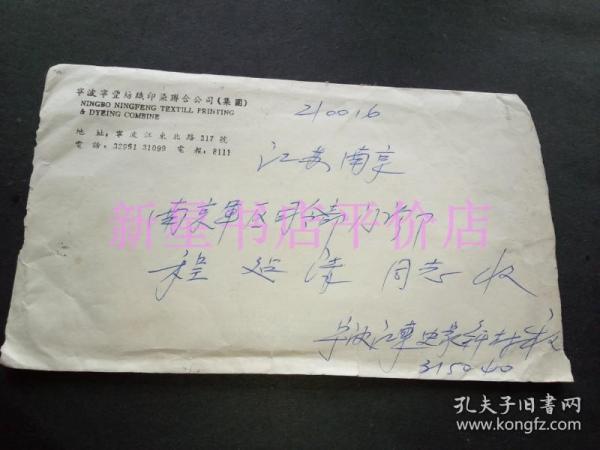 寧波寧豐紡織印染聯合公司(集團)
NINGBO NINGFENG TEXTILL PRINTING
& DYEING COMBINE
地 址: 寧波江東北路317號
電 話: 32951 31099 電 報: 8111
210016
江苏南京
南京军区司令部
程 廷 清 同志 收
宁波江东史家
315040
新星书店平价店
孔夫子旧书网
www.kongfz.com